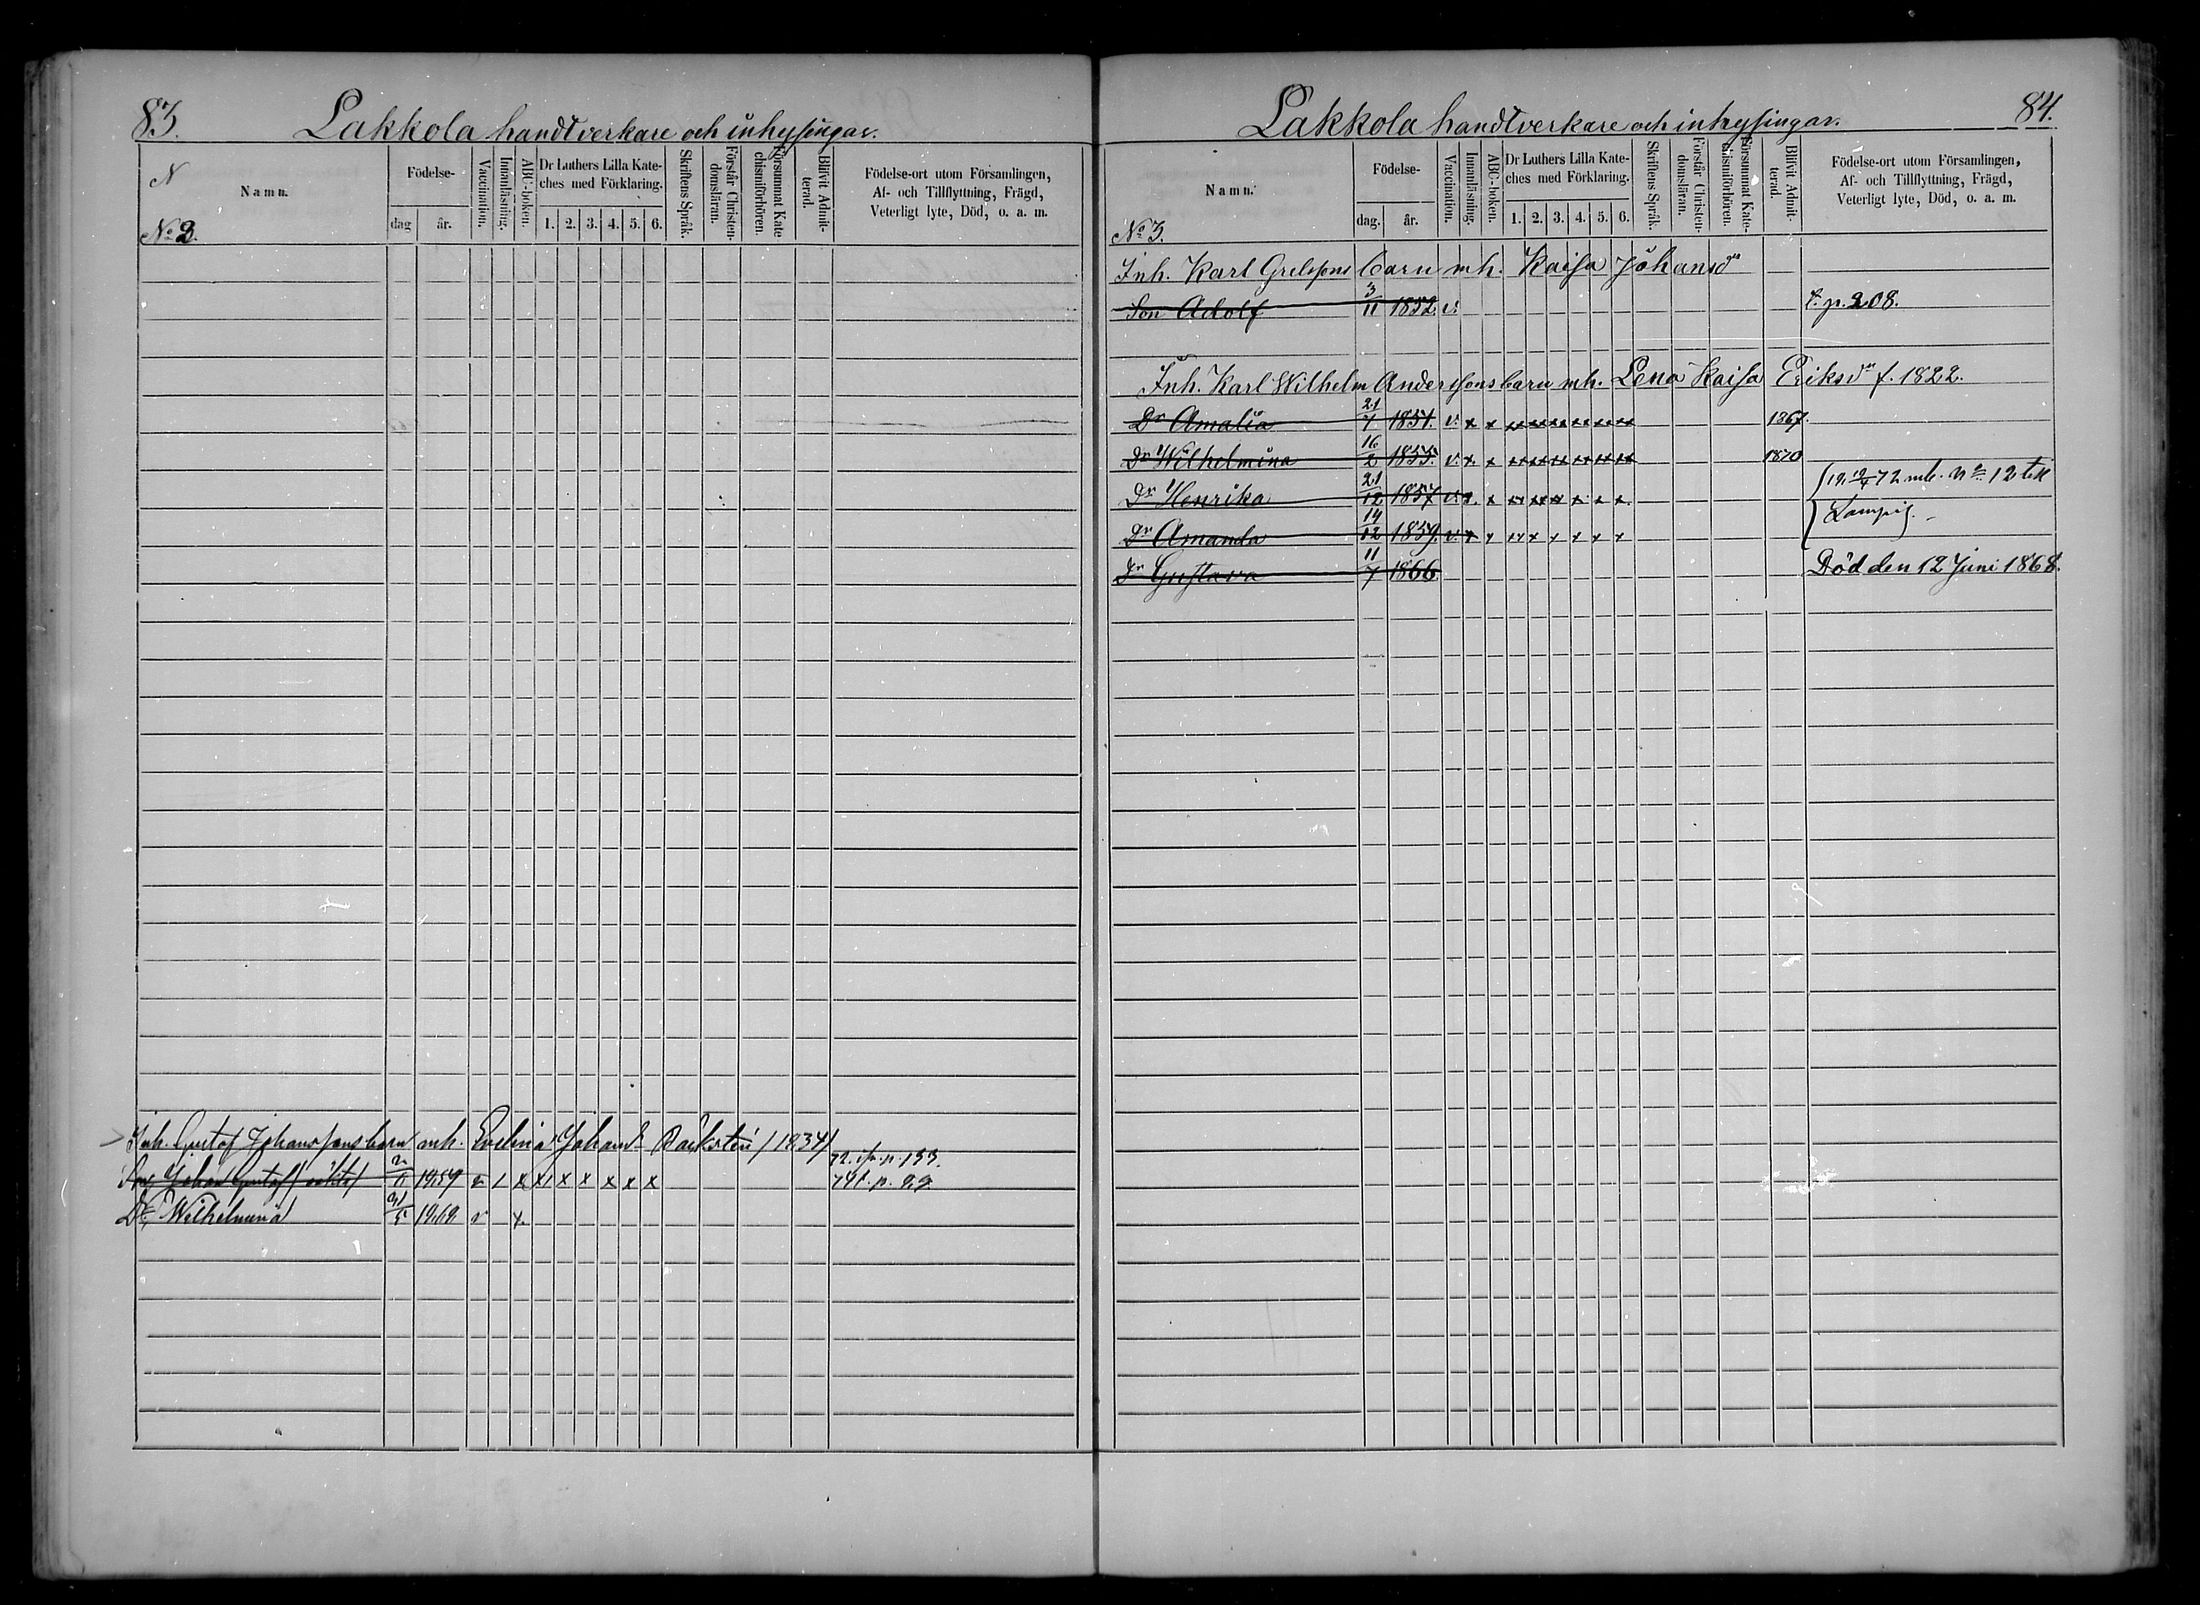 83.
Lakkola handtverkare och inhysingar.
N
Namn.
No 2.
Födelse-
dag
år.
Vaccination.
Innanläsning.
ABC-boken.
Dr Luthers Lilla Kate-
ches med Förklaring.
1. 2. 3. 4. 5. 6.
Skriftens Språk.
Förstår Christen-
domsläran.
Försummat Kate
chismiförhören.
Blifvit Admit-
terad.
Födelse-ort utom Församlingen,
Af- och Tillflyttning, Frägd,
Veterligt lyte, Död, o. a. m.
Inh. Gustaf Johanssons barn mh. Evelina Johansd / 1834 /
Son Johan Gustaf 1859 v / x x x x x x x
72 p. 133.
Dr Wilhelmina 31/5 1868 v x
84.
Lakkola handtverkare och inhysingar.
Namn.
No 3.
Födelse-
dag.
år.
Vaccination.
Innanläsning.
ABC-boken.
Dr Luthers Lilla Kate-
ches med Förklaring.
1. 2. 3. 4. 5. 6.
Skriftens Språk.
Förstår Christen-
domsläran.
Försummat Kate-
chismiförhören.
Blifvit Admit-
terad.
Födelse-ort utom Församlingen,
Af- och Tillflyttning, Frägd,
Veterligt lyte, Död, o. a. m.
Inh. Karl Grelssons barn mh. Kaisa Johansdr
Son Adolf 3/11 1852 v. t. p. 208.
Inh. Karl Wilhelm Anderssons barn mh. Lena Kaisa Eriksdr f. 1822.
Dr Amalia 21/7 1851. v. x x xx xx xx xx xx xx 1867.
Dr Wilhelmina 16/2 1855. v. x. x xx xx xx xx xx xx 1870
Dr Henrika 21/12 1857 v. x. x xx xx xx x x x mb. No 12 till
Dr Amanda 14/12 1859. v. x x xx x x x x x Lampis.
Dr Gustava 11/7 1866 Död den 12 Juni 1868.